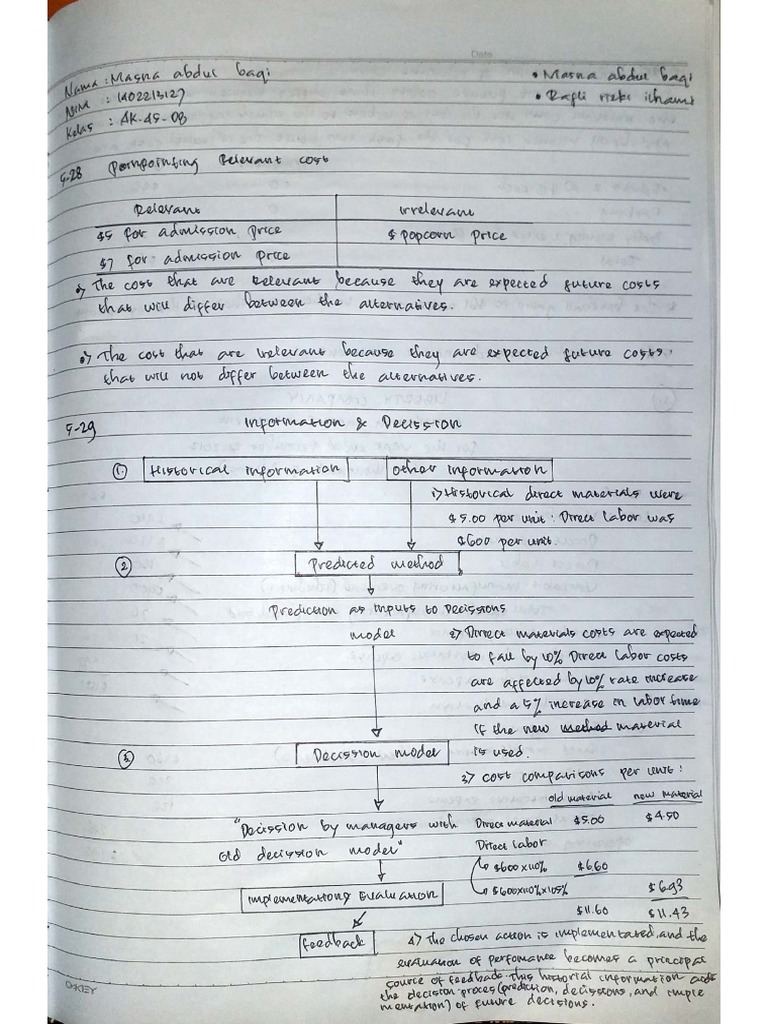 Date
Nama : Masna abdul baqi
• Masna abdul baqi
NIM : 1402213127
• Rafli rizki ilhami
Kelas : AK-45-08
5-28 Poinpointing Relevant cost
Relevant irrelevant
$5 for admission price $ popcorn price
$7 for admission price
•) The cost that are relevant because they are expected future costs
that will differ between the alternatives.
•) The cost that are irelevant because they are expected future costs.
that will not differ between the alternatives.
5-29 Information & Decission
① Historical information other information
1) Historical direct materials were
$5.00 per unit : Direct labor was
$600 per unit.
② Predicted method
Prediction as inputs to Decissions
model
2) Direct materials costs are expected
to fall by 10% Direct labor costs
are affected by 10% rate increase
and a 5% increase in labor time
if the new method material
is used.
③ Decission model
3) cost comparisons per unit :
old material new material
"Decission by managers with
old decission model"
Direct material $5.00 $4.50
Direct labor
$600x110% $6.60
$600x110%x105% $6.93
$11.60 $11.43
Implementationg Evaluation
feedback
4) The chosen action is implementated, and the
evaluation of perfomance becomes a principal
source of feedback. This historial information
the decision proces (prediction, decissions, and imple
mentation) of future decisions.